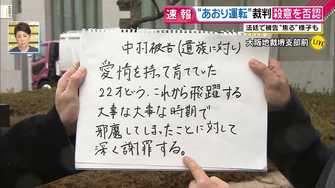 速報 "あおり運転"裁判 殺意を否認
法廷で被告"焦る"様子も
大阪地裁堺支部前
中村被告(遺族に対し)
愛情を持って育てていた
22才どう、これから飛躍する
大事な大事な時期で
邪魔してしまったことに対して
深く謝罪する。